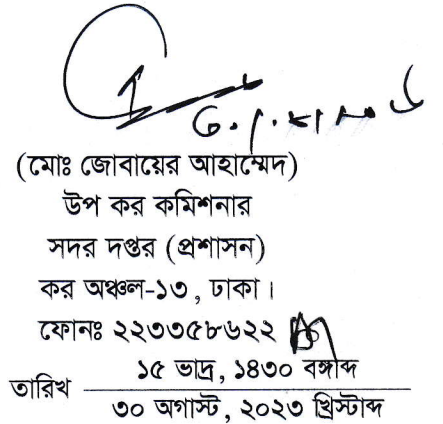 (মোঃ জোবায়ের আহাম্মেদ)
উপ কর কমিশনার
সদর দপ্তর (প্রশাসন)
কর অঞ্চল-১৩, ঢাকা।
ফোনঃ ২২৩৩৫৮৬২২
১৫ ভাদ্র, ১৪৩০ বঙ্গাব্দ
তারিখ
৩০ অগাস্ট, ২০২৩ খ্রিস্টাব্দ